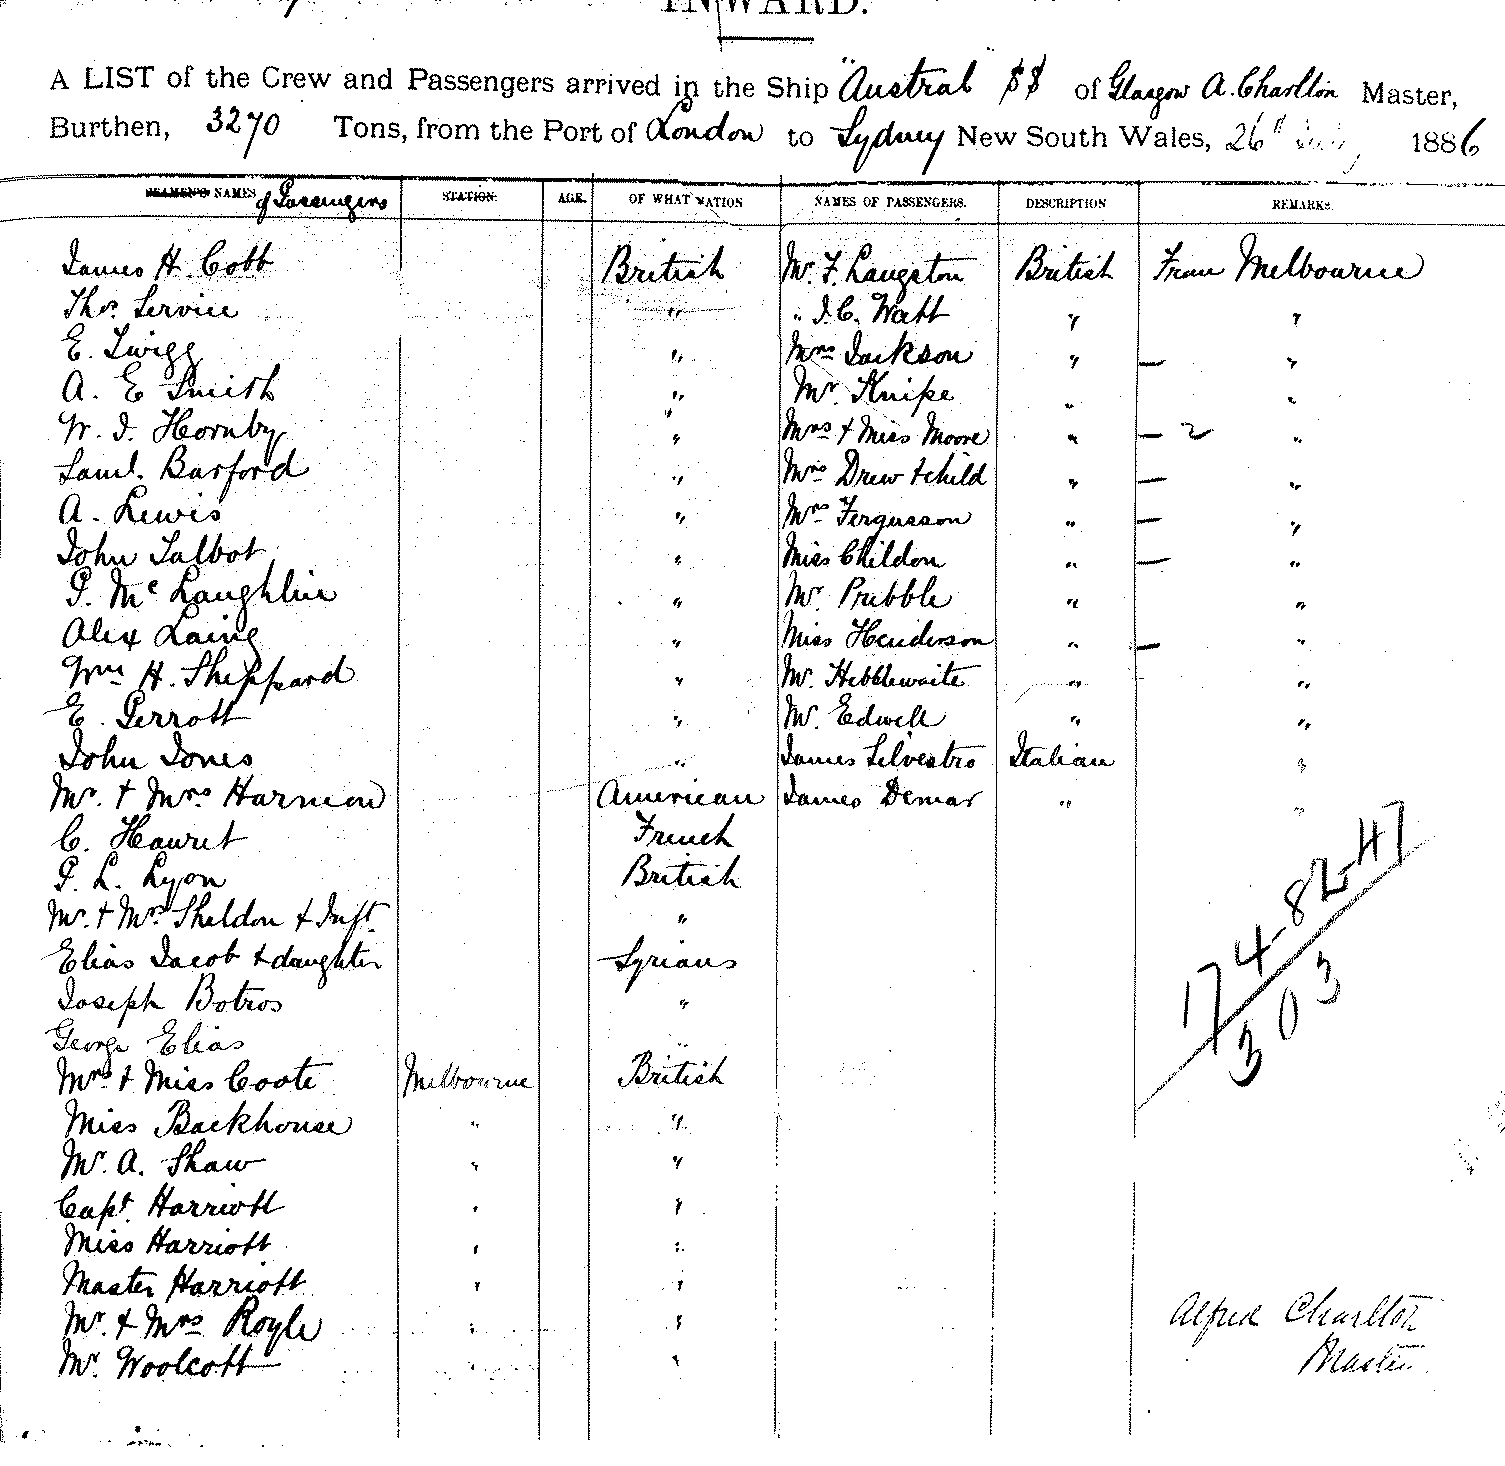 INWARD.
A LIST of the Crew and Passengers arrived in the Ship "Austral" SS of Glasgow A. Charlton Master,
Burthen, 3270 Tons, from the Port of London to Sydney New South Wales, 26th 1886
SEAMEN'S NAMES of Passengers STATION. AGE. OF WHAT NATION NAMES OF PASSENGERS. DESCRIPTION REMARKS.
James H. Cobb British Mr. F. Langston British From Melbourne
Thos. Service " " J. C. Watt " "
E. Twigg " Mrs Jackson " — "
A. E Smith " Mr. Knipe " "
W. J. Hornby " Mrs + Miss Moore " — 2 "
Saml. Barford " Mrs Drew + child " — "
A. Lewis " Mrs Fergusson " — "
John Talbot " Miss Childon " — "
P. Mc Laughlin " Mr. Prebble " "
Alex Laing " Miss Henderson " — "
Wm H. Sheppard " Mr. Hebblewaite " "
E. Perrott " Mr. Edwell " "
John Jones " James Silvestro Italian "
Mr. + Mrs Harmon American James Demar " "
C. Hauret French
P. L. Lyon British
Mr. + Mrs Sheldon + Inft. "
Elias Jacob + daughter Syrians
Joseph Botros "
George Elias "
Mrs + Miss Coote Melbourne British
Miss Backhouse " "
Mr. A. Shaw " "
Capt. Harriott " "
Miss Harriott " "
Master Harriott " "
Mr. + Mrs Royle " "
Mr. Woolcott " "
174-82-47
303
Alfred Charlton
Master